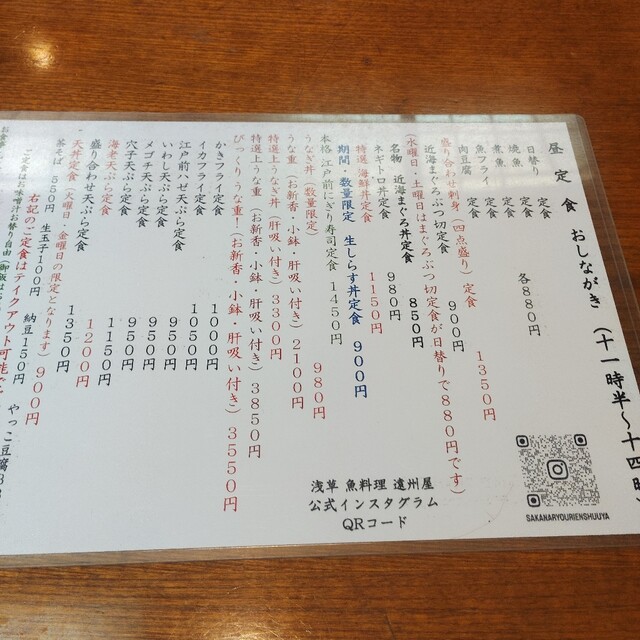 昼定食 おしながき (十一時半〜十四時
日替り 定食
焼魚 定食
煮魚 定食
魚フライ 定食
肉豆腐 定食
各880円
盛り合わせ刺身(四点盛り)定食 1350円
近海まぐろぶつ切定食 900円
(水曜日・土曜日はまぐろぶつ切定食が日替りで880円です)
名物 近海まぐろ丼定食 850円
ネギトロ丼定食 980円
特選 海鮮丼定食 1150円
期間・数量限定 生しらす丼定食 900円
本格 江戸前にぎり寿司定食 1450円
うなぎ丼(数量限定) 980円
うな重(お新香・小鉢・肝吸い付き) 2100円
特選上うな丼(肝吸い付き) 3300円
特選上うな重(お新香・小鉢・肝吸い付き) 3850円
びっくりうな重!(お新香・小鉢・肝吸い付き) 3550円
かきフライ定食 1000円
イカフライ定食 1050円
江戸前ハゼ天ぷら定食 950円
いわし天ぷら定食 950円
メゴチ天ぷら定食 950円
穴子天ぷら定食 1150円
海老天ぷら定食 1200円
盛り合わせ天ぷら定食 1350円
天丼定食(水曜日・金曜日の限定となります) 900円
茶そば 550円 生玉子100円 納豆150円 やっこ豆腐
右記のご定食はテイクアウト可能で
浅草 魚料理 遠州屋
公式インスタグラム
QRコード
SAKANARYOURIENSHUUYA